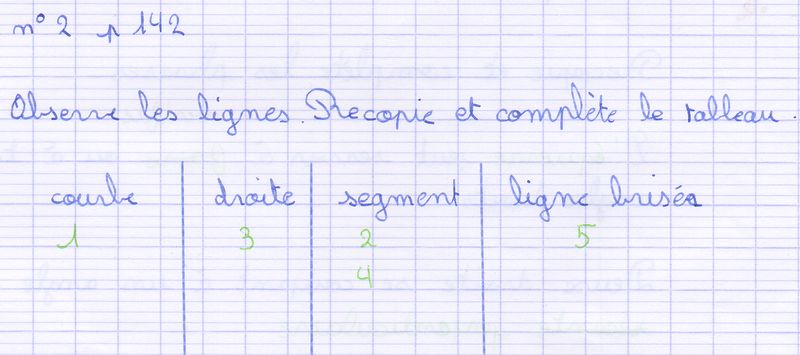 n° 2 p 142
Observe les lignes. Recopie et complète le tableau.
courbe droite segment ligne brisée
1 3 2 5
4